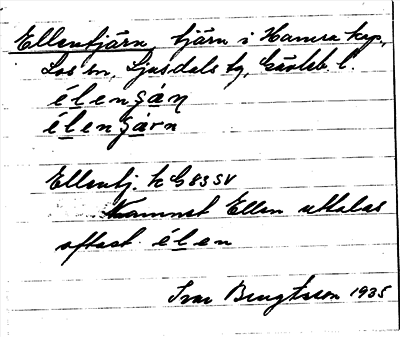 Ellentjärn, tjärn i Hamra kap,
Los sn, Ljusdals tg, Gävleb. l.
élengán
élengárn
Ellentj. k G83SV
Namnet Ellen uttalas
oftast élen
Ivar Bengtsson 1935